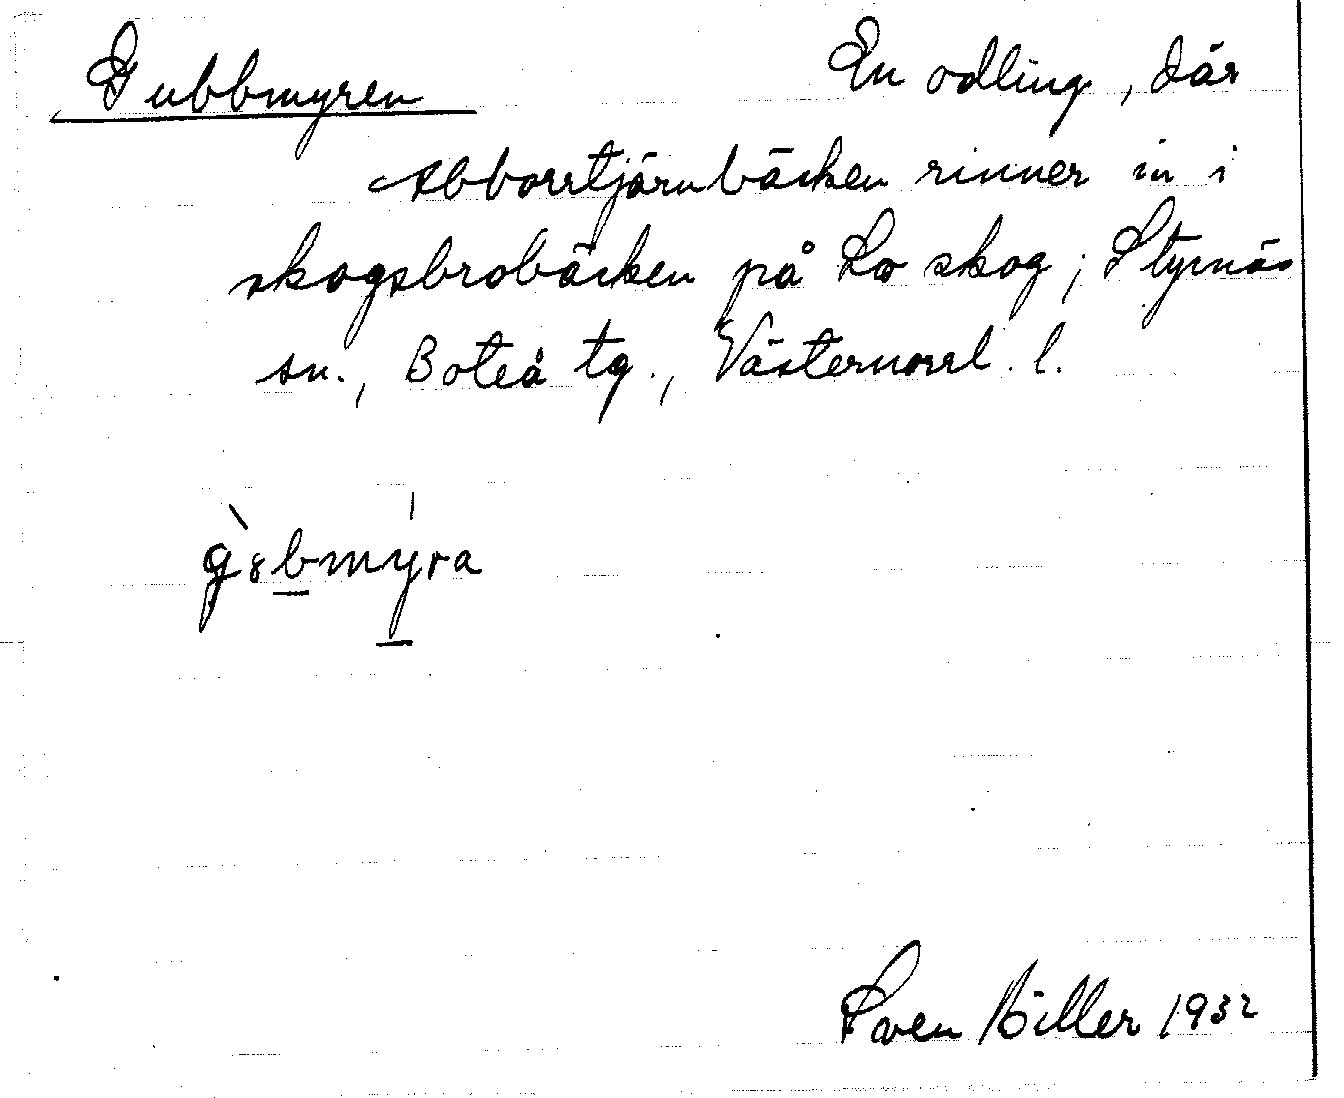 Gubbmyren En odling, där
Abborrtjärnbäcken rinner in i
skogsbrobäcken på Lo skog; Styrnäs
sn., Boteå tg., Västernorrl. l.
g̀8bmýra
Sven Biller 1932